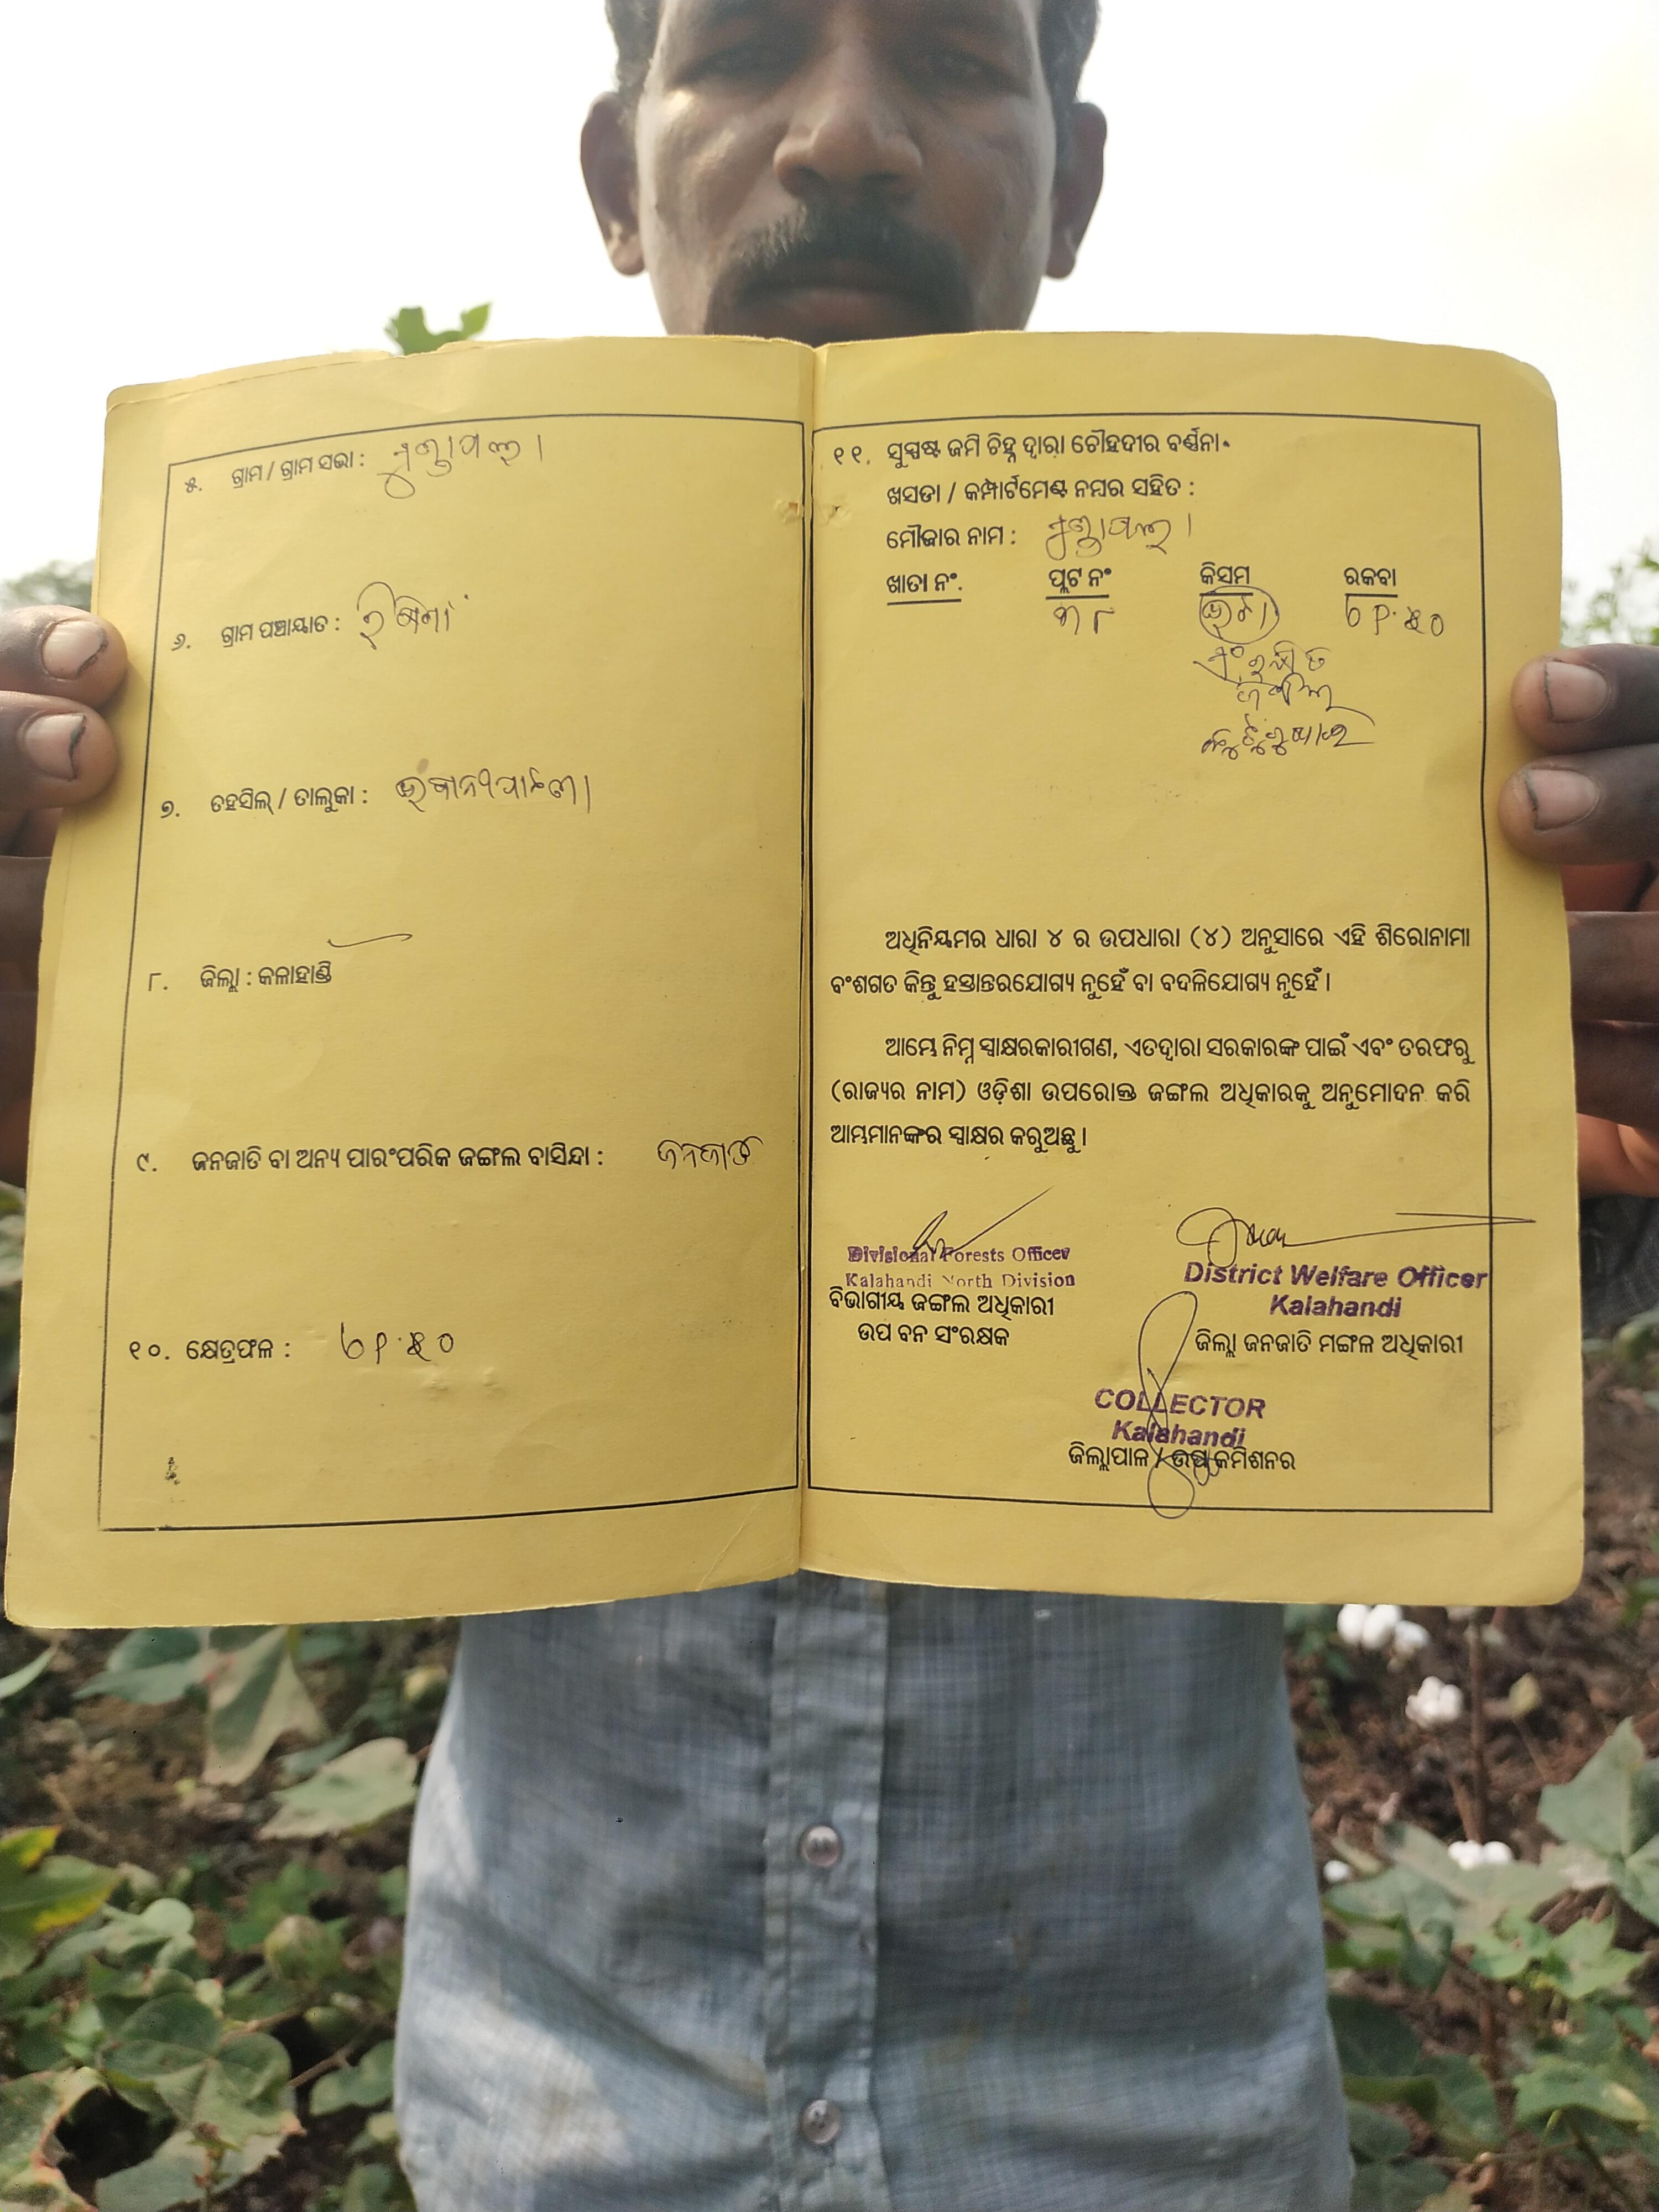 ୫. ଗ୍ରାମ / ଗ୍ରାମ ସଭା : ମୁଣ୍ଡାପଲା
୬. ଗ୍ରାମ ପଞ୍ଚାୟାତ :
୭. ତହସିଲ୍ / ତାଲୁକା : ଭବାନୀପାଟଣା
୮. ଜିଲ୍ଲା : କଳାହାଣ୍ଡି
୯. ଜନଜାତି ବା ଅନ୍ୟ ପାରଂପରିକ ଜଙ୍ଗଲ ବାସିନ୍ଦା : ଜନଜାତି
୧୦. କ୍ଷେତ୍ରଫଳ :
୧୧. ସୁସ୍ପଷ୍ଟ ଜମି ଚିହ୍ନ ଦ୍ୱାରା ଚୌହଦୀର ବର୍ଣ୍ଣନା
ଖସଡା / କମ୍ପାର୍ଟମେଣ୍ଟ ନମ୍ବର ସହିତ :
ମୌଜାର ନାମ : ମୁଣ୍ଡାପଲା
ଖାତା ନଂ. ପ୍ଲଟ ନଂ କିସମ ରକବା
ଅଧିନିୟମର ଧାରା ୪ ର ଉପଧାରା (୪) ଅନୁସାରେ ଏହି ଶିରୋନାମା
ବଂଶଗତ କିନ୍ତୁ ହସ୍ତାନ୍ତରଯୋଗ୍ୟ ନୁହେଁ ବା ବଦଳିଯୋଗ୍ୟ ନୁହେଁ ।
ଆମ୍ଭେ ନିମ୍ନ ସ୍ୱାକ୍ଷରକାରୀଗଣ, ଏତଦ୍ୱାରା ସରକାରଙ୍କ ପାଇଁ ଏବଂ ତରଫରୁ
(ରାଜ୍ୟର ନାମ) ଓଡ଼ିଶା ଉପରୋକ୍ତ ଜଙ୍ଗଲ ଅଧିକାରକୁ ଅନୁମୋଦନ କରି
ଆମ୍ଭମାନଙ୍କର ସ୍ୱାକ୍ଷର କରୁଅଛୁ ।
Divisional Forests Officer
Kalahandi North Division
ବିଭାଗୀୟ ଜଙ୍ଗଲ ଅଧିକାରୀ
ଉପ ବନ ସଂରକ୍ଷକ
District Welfare Officer
Kalahandi
ଜିଲ୍ଲା ଜନଜାତି ମଙ୍ଗଳ ଅଧିକାରୀ
COLLECTOR
Kalahandi
ଜିଲ୍ଲାପାଳ / ଉପ କମିଶନର